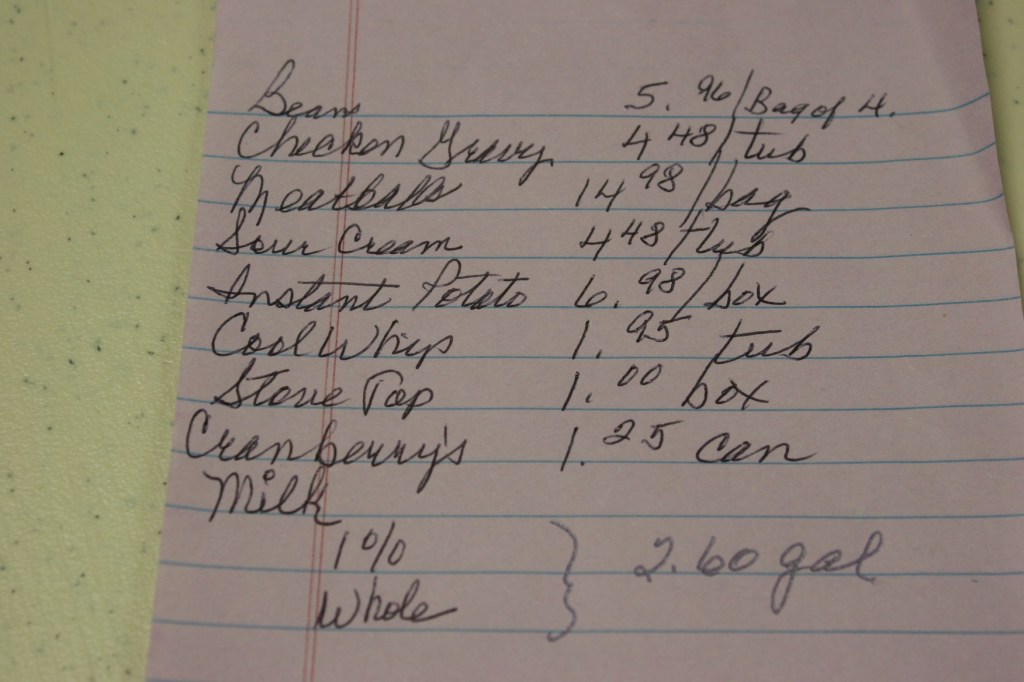 Beans 5.96/Bag of 4.
Checken Gravy 4 48/tub
Meatballs 14 98/bag
Sour Cream 4 48/tub
Instant Potato 6.98/box
Cool Whip 1.95 tub
Stove Top 1.00 box
Cranberry's 1.25 can
Milk
1%
Whole } 2.60 gal